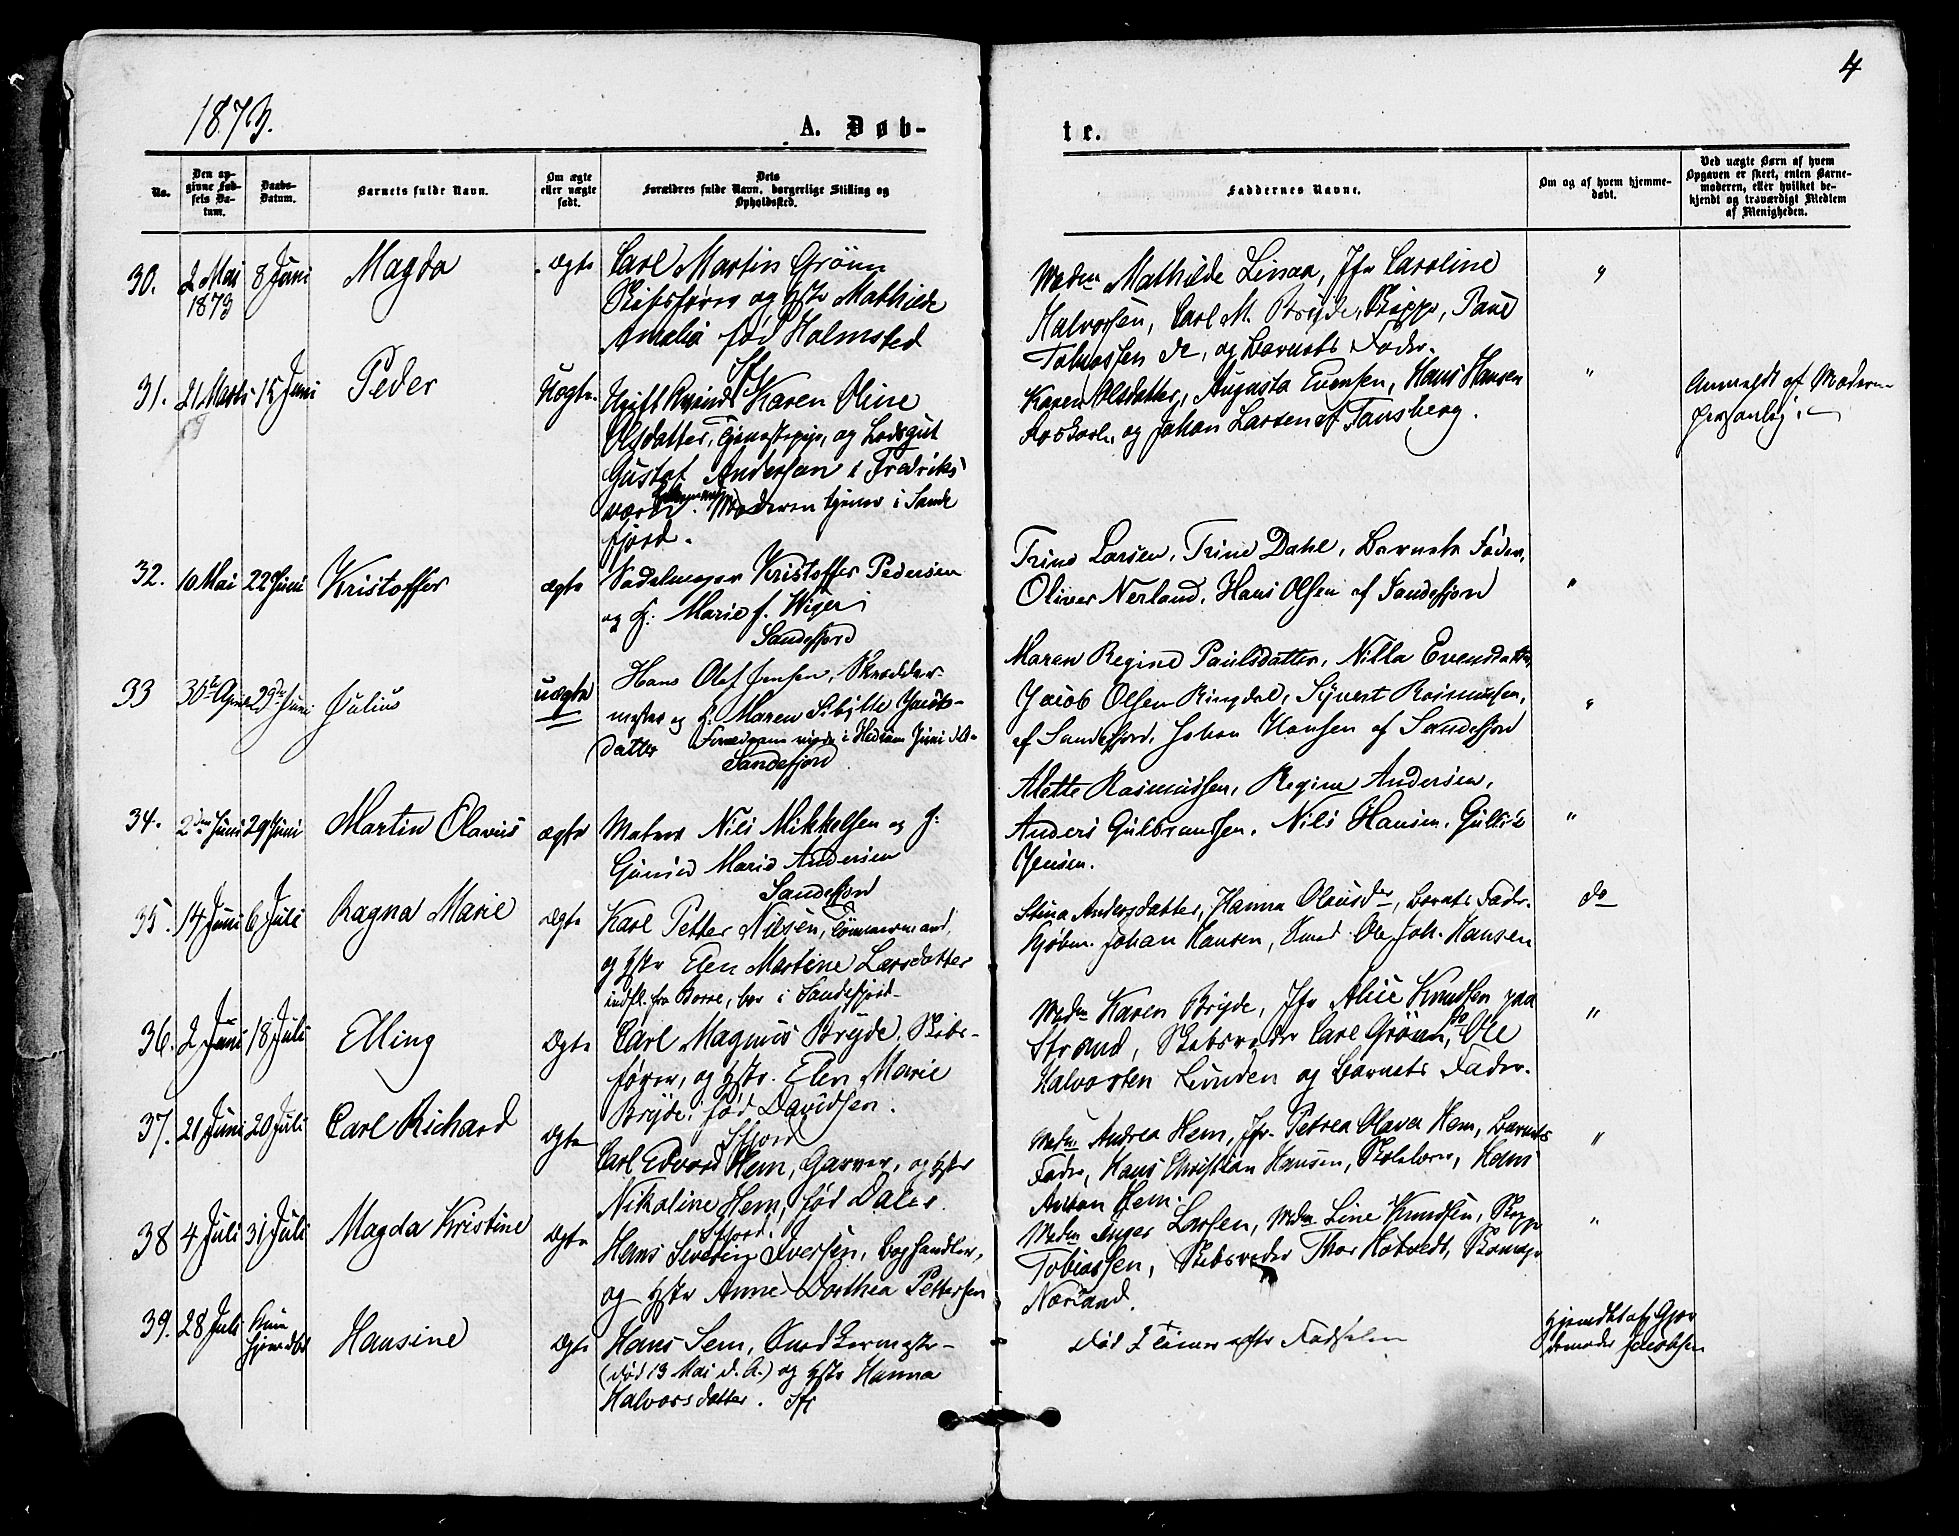 1873.
4
A. Døb-
te.
No.
Den op-
givne Fød-
sels Da-
tum.
Daabs-
Datum.
Barnets fulde Navn.
Om ægte
eller uægte
født.
Dets
Forældres fulde Navn, borgerlige Stilling og
Opholdssted.
Faddernes Navne.
Om og af hvem hjemme-
døbt.
Ved uægte Børn af hvem
Opgaven er skeet, enten Barne-
moderen, eller hvilket be-
kjendt og troværdigt Medlem
af Menigheden.
30.
2 Mai
1873
8 Juni
Magda
Ægte
Carl Martin Grönn
Skibsfører og Hstr Mathilde
Amalia fød Holmsted
Sfj
Madm Mathilde Linaa, Jfr Caroline
Halvorsen, Carl M. Bryde, Skipp, Paul
Tobiassen do, og Barnets Fader.
"
31.
21 Marts
15 Juni
Peder
Uægte
Ugift Kvinde Karen Oline
Olsdatter, Tjenestepige, og Lodsgut
Gustaf Andersen i Fredriks
værn. Moderen tjener i Sande
fjord.
Karen Olsdatter, Augusta Evensen, Hans Hansen
og Johan Larsen af Tønsberg.
"
Anmeldt af Moderen
personlig
32.
10 Mai
22 Juni
Kristoffer
ægte
Sadelmager Kristoffer Pedersen
og H. Marie f. Wiger
Sandefjord
Trine Larsen, Trine Dahl, Barnets Fader,
Oliver Nerland, Hans Olsen af Sandefjord
"
33
30te April
29de Juni
Julius
uægte
Hans Olaf Jensen, Skrædder-
mester og H. Maren Sibille Jacobs-
datter Forældrene viede i Hedrum Juni d. A.
Sandefjord
Maren Regine Paulsdatter, Nilla Evensdatter
Jacob Olsen Ringdal, Syvert Rasmussen,
af Sandefjord, Johan Hansen af Sandefjord
"
34.
2den Juni
29 Juni
Martin Olavus
ægte
Matros Nils Mikkelsen og H:
Gunild Marie Andersen
Sandefjord
Alette Rasmussen, Regine Andersen,
Anders Gulbranssen, Nils Hansen, Gullik
Jensen.
"
35.
14 Juni
6 Juli
Ragna Marie
Ægte
Karl Petter Nilsen, Tömmermand,
og Hstr Elen Martine Larsdatter
indfl. fra Borre, bor i Sandefjord
Stina Andersdatter, Hanna Olausdr, Barnets Fader.
Kjøbm. Johan Hansen, Smed Ole Joh. Hansen
do
36.
2 Juni
18 Juli
Elling
Ægte
Carl Magnus Bryde, Skibs-
fører, og Hstr. Elen Marie
Bryde, fød Davidsen.
Sfjord
Madm Karen Bryde, Jfr Alice Knudsen paa
Strand, Skibsreder Carl Grönn, do Ole
Halvorsen Lunden og Barnets Fader.
"
37.
21 Juni
20 Juli
Carl Richard
Ægte
Carl Edvard Hem, Garver, og Hstr
Nikoline Hem, fød Dales
Sfjord.
Madm Andrea Hem, Jfr. Petrea Olava Hem, Barnets
Fader, Hans Christian Hansen, Skolelærer, Hans
Anton Hem.
"
38
4 Juli
31 Juli
Magda Kristine
Ægte
Hans Severin Iversen, Boghandler,
og Hstr Anne Dorthea Pettersen
Madm Inger Larsen, Madm Line Knudsen, Skipp
Tobiassen, Skibsreder Thor Hotvedt, Skomagr
Norland.
"
39.
28 Juli
Kun
hjemdbt
Hansine
Ægte
Hans Sem, Snedkermester
(død 13 Mai d. A.) og Hstr Hanna
Halvorsdatter. Sfj
Död 2 Timer efter Fødselen
Hjemdöbt af Gjor
demoder Jacobsen